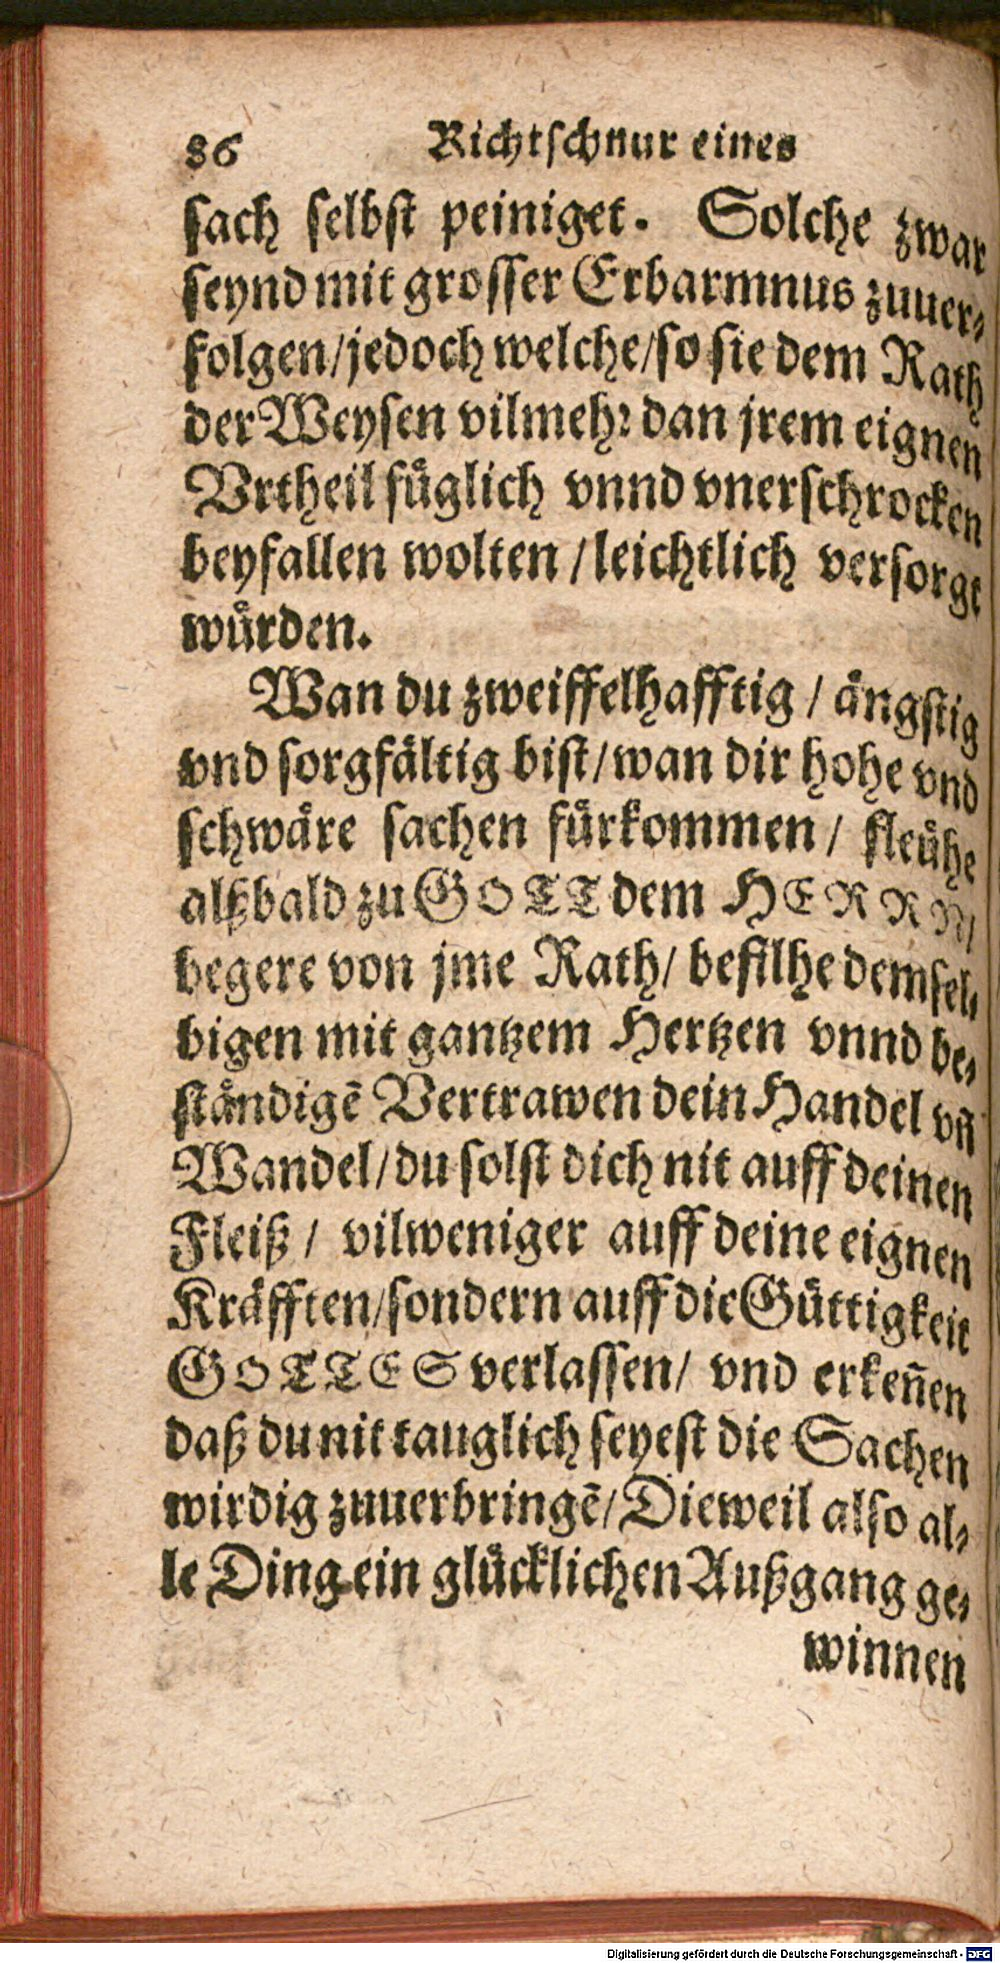 86 Richtschnur eines
sach selbst peiniget. Solche zwar
seynd mit grosser Erbarmnus zuuer⸗
folgen/jedoch welche/so sie dem Rath
der Weysen vilmehr dan jrem eignen
Vrtheil fuͤglich vnnd vnerschrocken
beyfallen wolten / leichtlich versorgt
wuͤrden.
Wan du zweiffelhafftig / aͤngstig
vnd sorgfaͤltig bist/wan dir hohe vnd
schwaͤre sachen fuͤrkommen / fleuͤhe
alßbald zu GOTT dem HERRN/
begere von jme Rath/ befilhe demsel⸗
bigen mit gantzem Hertzen vnnd be⸗
staͤndigẽ Vertrawen dein Handel vñ
Wandel/du solst dich nit auff deinen
Fleiß / vilweniger auff deine eignen
Kraͤfften/sondern auff die Guͤttigkeit
GOTTES verlassen/ vnd erkeñen
daß du nit tauglich seyest die Sachen
wirdig zuuerbringẽ/Dieweil also al⸗
le Ding ein gluͤcklichen Außgang ge⸗
winnen
Digitalisierung gefördert durch die Deutsche Forschungsgemeinschaft - DFG